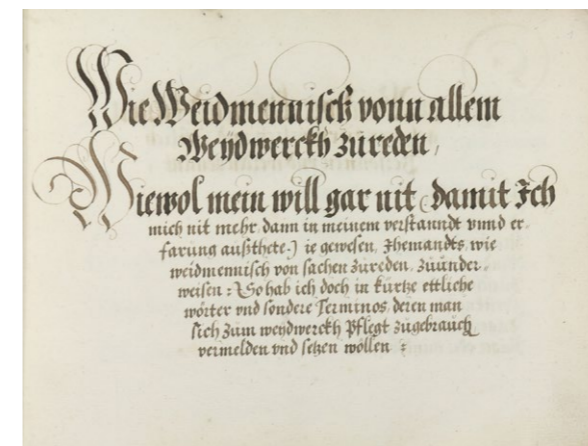 Wie Weidmennisch vonn allem
Weydwerckh zureden,
Wiewol mein will gar nit (damit Ich
mich nit mehr, dann in meinem verstanndt vnnd er,
farung außthete,) ie gewesen, Jhemandts, wie
weidmennisch von sachen zureden, zuünder,
weisen: So hab ich doch in kürtze ettliche
wörter vnd sondere Terminos, deren man
sich zum weydwerckh pflegt zugebrauch
vermelden vnd setzen wöllen: